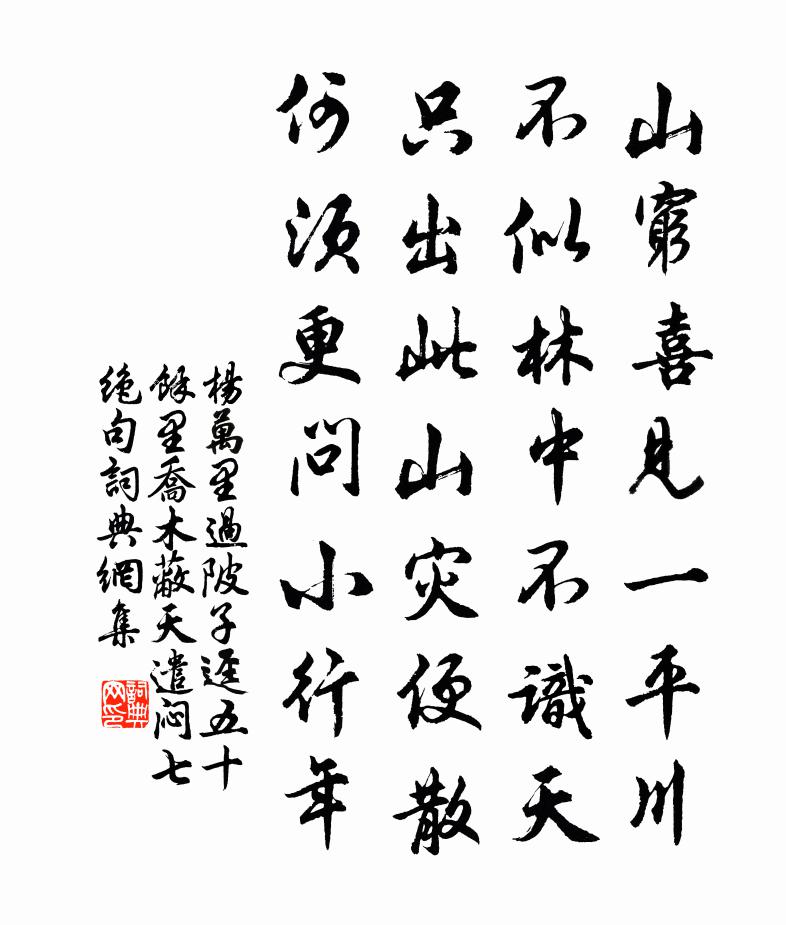 山窮喜見一平川
不似林中不識天
只出此山灾便散
何須更問小行年
楊萬里過陂子逕五十
餘里喬木蔽天遣悶七
絶句詞典網集
詞典
网印